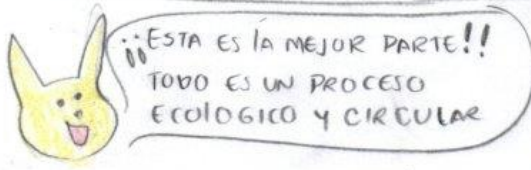 ¡¡ESTA ES lA MEJOR PARTE!!
TODO ES UN PROCESO
ECOlOGICO Y CIRCULAR